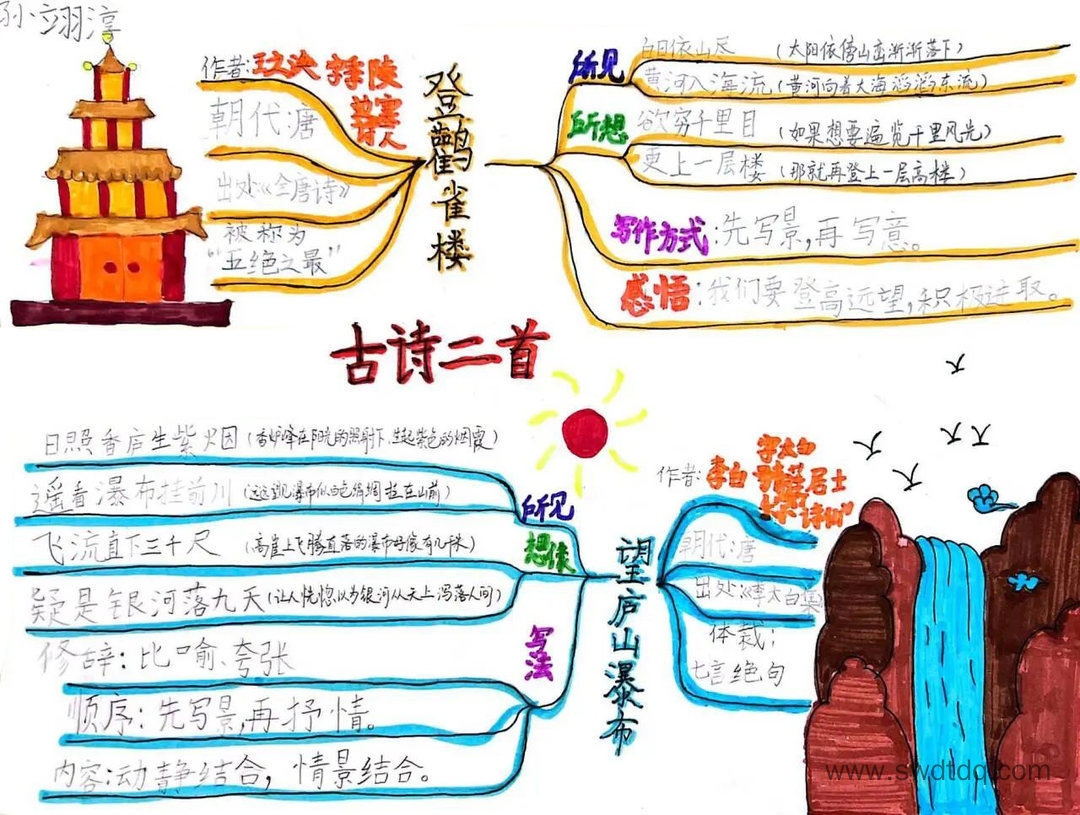 孙翊淳
作者:王之涣 字季陵
边塞诗人
朝代唐
出处:《全唐诗》
被称为
“五绝之最”
登鹳雀楼
所见
白日依山尽 (太阳依傍山峦渐渐落下)
黄河入海流 (黄河向着大海滔滔东流)
所想
欲穷千里目 (如果想要遍览千里风光)
更上一层楼 (那就再登上一层高楼)
写作方式:先写景,再写意。
感悟:我们要登高远望,积极进取。
古诗二首
日照香庐生紫烟(香炉峰在阳光的照射下,生起紫色的烟霞)
遥看瀑布挂前川(远远望见瀑布似白色绢绸挂在山前)
所见
飞流直下三千尺 (高崖上飞腾直落的瀑布好像有几千米)
想像
疑是银河落九天(让人恍惚以为银河从天上泻落人间)
写法
修辞:比喻、夸张
顺序:先写景,再抒情。
内容:动静结合,情景结合。
望庐山瀑布
作者:李白 字太白
号青莲居士
“诗仙”
朝代唐
出处:《李太白集
体裁:
七言绝句
www.swdtdq.com